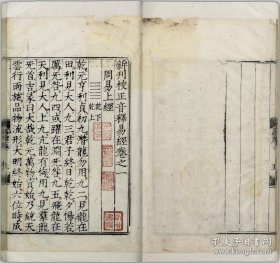 新刊校正音釋易經卷之一
周易上經
乾元亨利貞初九潛龍勿用九二見龍在
田利見大人九三君子終日乾乾夕惕若
厲无咎九四或躍在淵无咎九五飛龍在
天利見大人上九亢龍有悔用九見羣龍
无首吉彖曰大哉乾元萬物資始乃統天
雲行雨施品物流形大明終始六位時成
孔夫子旧书网